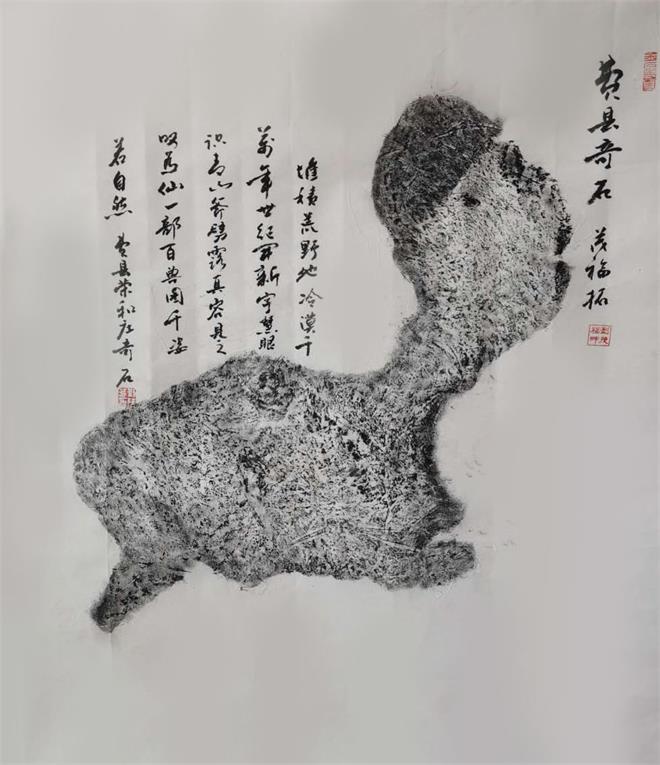 费县奇石 茂福拓
堆积荒野地冷漠千
萬年世纪开新宇慧眼
识山斧劈露真容见之
叹为仙一部百兽图千姿
若自然 费县荣和庄奇石